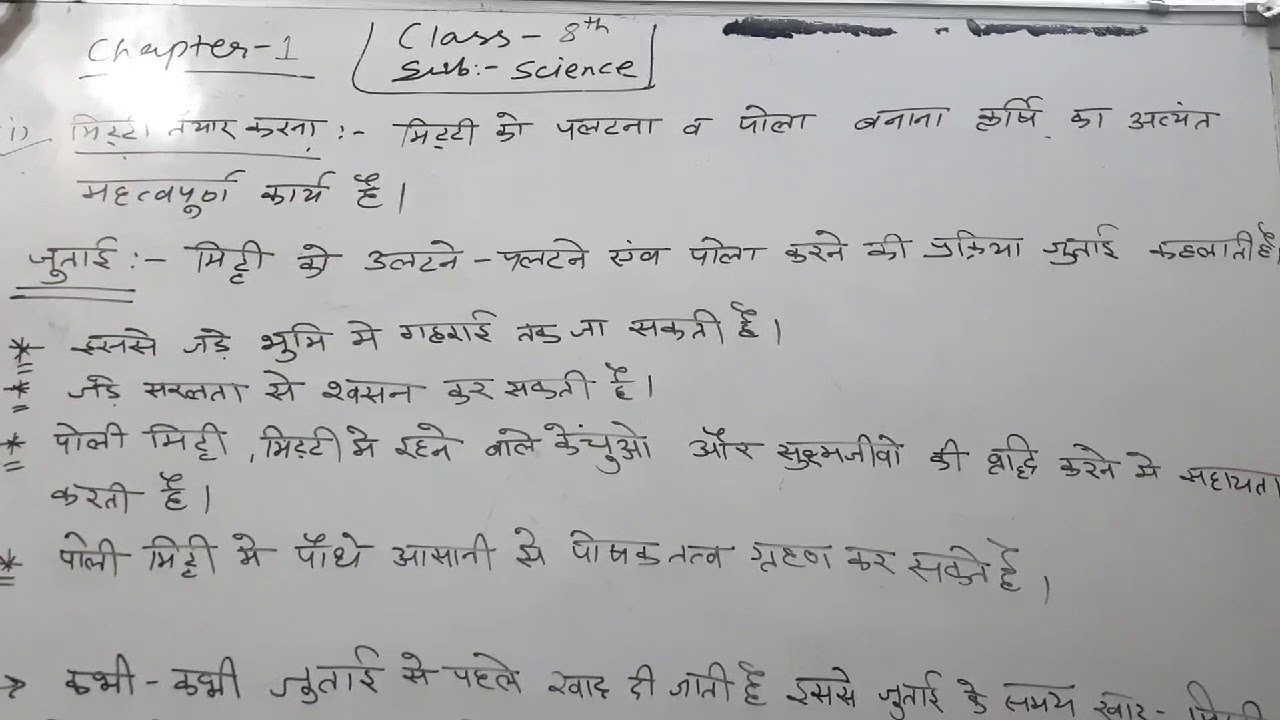 Chapter-1
Class - 8th
Sub:- Science
i) मिट्टी तैयार करना :- मिट्टी को पलटना व पोला बनाना कृर्षि का अत्यंत
महत्वपूर्ण कार्य है।
जुताई :- मिट्टी को उलटने - पलटने एंव पोला करने की प्रक्रिया जुताई कहलाती है।
* इससे जड़े भुमि मे गहराई तक जा सकती है।
* जड़े सरलता से श्वसन कर सकती है।
* पोली मिट्टी, मिट्टी मे रहने वाले केंचुओ और सुक्ष्मजीवो की वृद्धि करने मे सहायता
करती है।
* पोली मिट्टी मे पौधे आसानी से पोषक तत्व ग्रहण कर सकते है।
→ कभी - कभी जुताई से पहले खाद दी जाती है इससे जुताई के समय खाद -